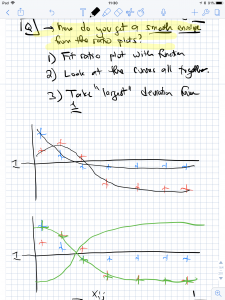 11:30
Q → How do you get a smooth envelope
from the ratio plots?
1) Fit ratio plot with function
2) Look at the curves all together
3) Take "largest" deviation from
1
1
1